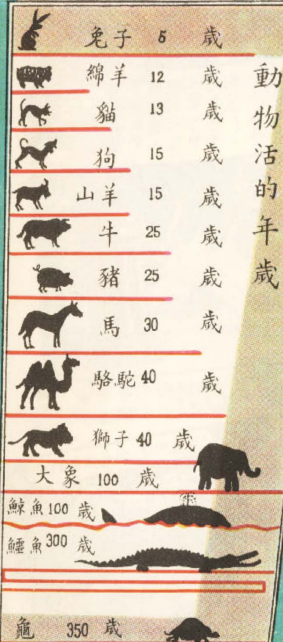 動物活的年歲
兔子 5 歲
綿羊 12 歲
貓 13 歲
狗 15 歲
山羊 15 歲
牛 25 歲
豬 25 歲
馬 30 歲
駱駝 40 歲
獅子 40 歲
大象 100 歲
鯨魚 100 歲
鱷魚 300 歲
龜 350 歲